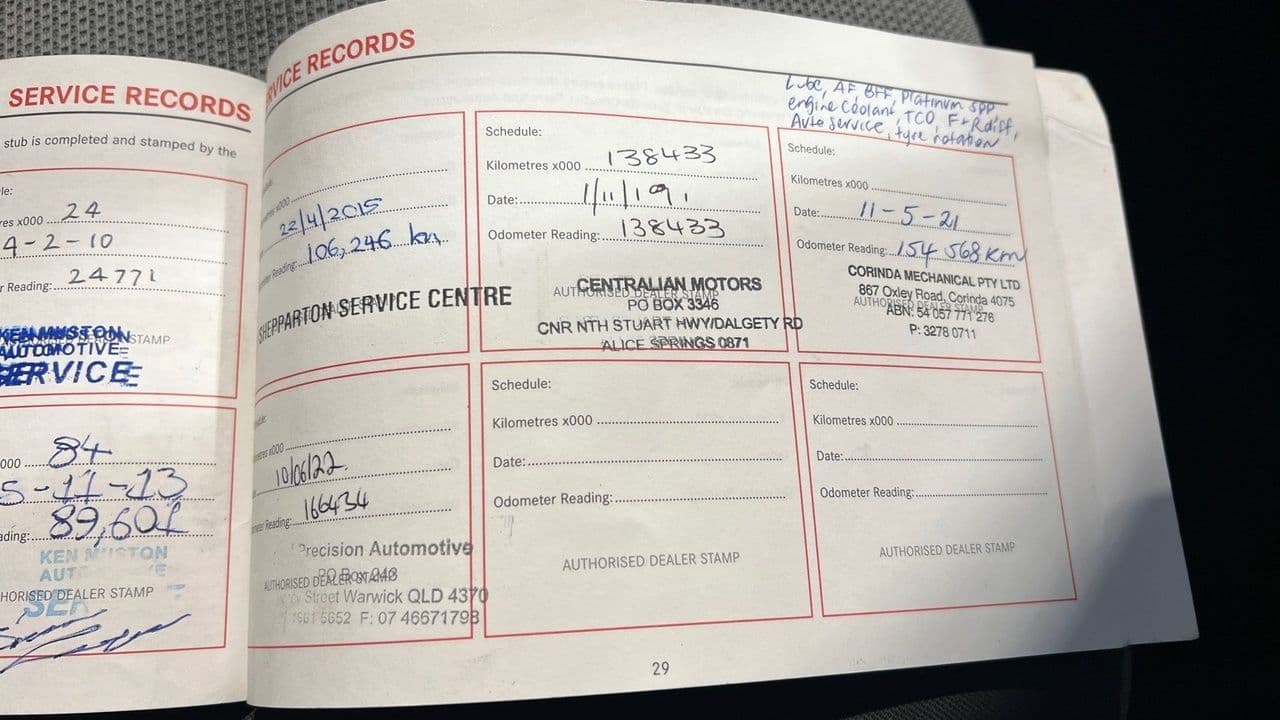 SERVICE RECORDS
stub is completed and stamped by the
le:
res x000 24
4-2-10
r Reading: 24771
KEN MUSTON
AUTOMOTIVE
SERVICE
STAMP
000 84
5-11-13
ading: 89,601
KEN MUSTON
HORISED DEALER STAMP
RVICE RECORDS
22/4/2015
Reading: 106,246 km
SHEPPARTON SERVICE CENTRE
Schedule:
Kilometres x000 138433
Date: 1/11/19
Odometer Reading: 138433
AUTHORISED DEALER STAMP
CENTRALIAN MOTORS
PO BOX 3346
CNR NTH STUART HWY/DALGETY RD
ALICE SPRINGS 0871
Lube, AF, BFF Platinum spp
engine coolant, TCO, F+R diff,
Auto service, tyre rotation
Schedule:
Kilometres x000
Date: 11-5-21
Odometer Reading: 154 568 km
CORINDA MECHANICAL PTY LTD
867 Oxley Road, Corinda 4075
AUTHORISED DEALER STAMP
ABN: 54 057 771 276
P: 3278 0711
10/06/22
Reading: 166434
Precision Automotive
AUTHORISED DEALER STAMP
Street Warwick QLD 4370
5652 F: 07 46671798
Schedule:
Kilometres x000
Date:
Odometer Reading:
AUTHORISED DEALER STAMP
Schedule:
Kilometres x000
Date:
Odometer Reading:
AUTHORISED DEALER STAMP
29